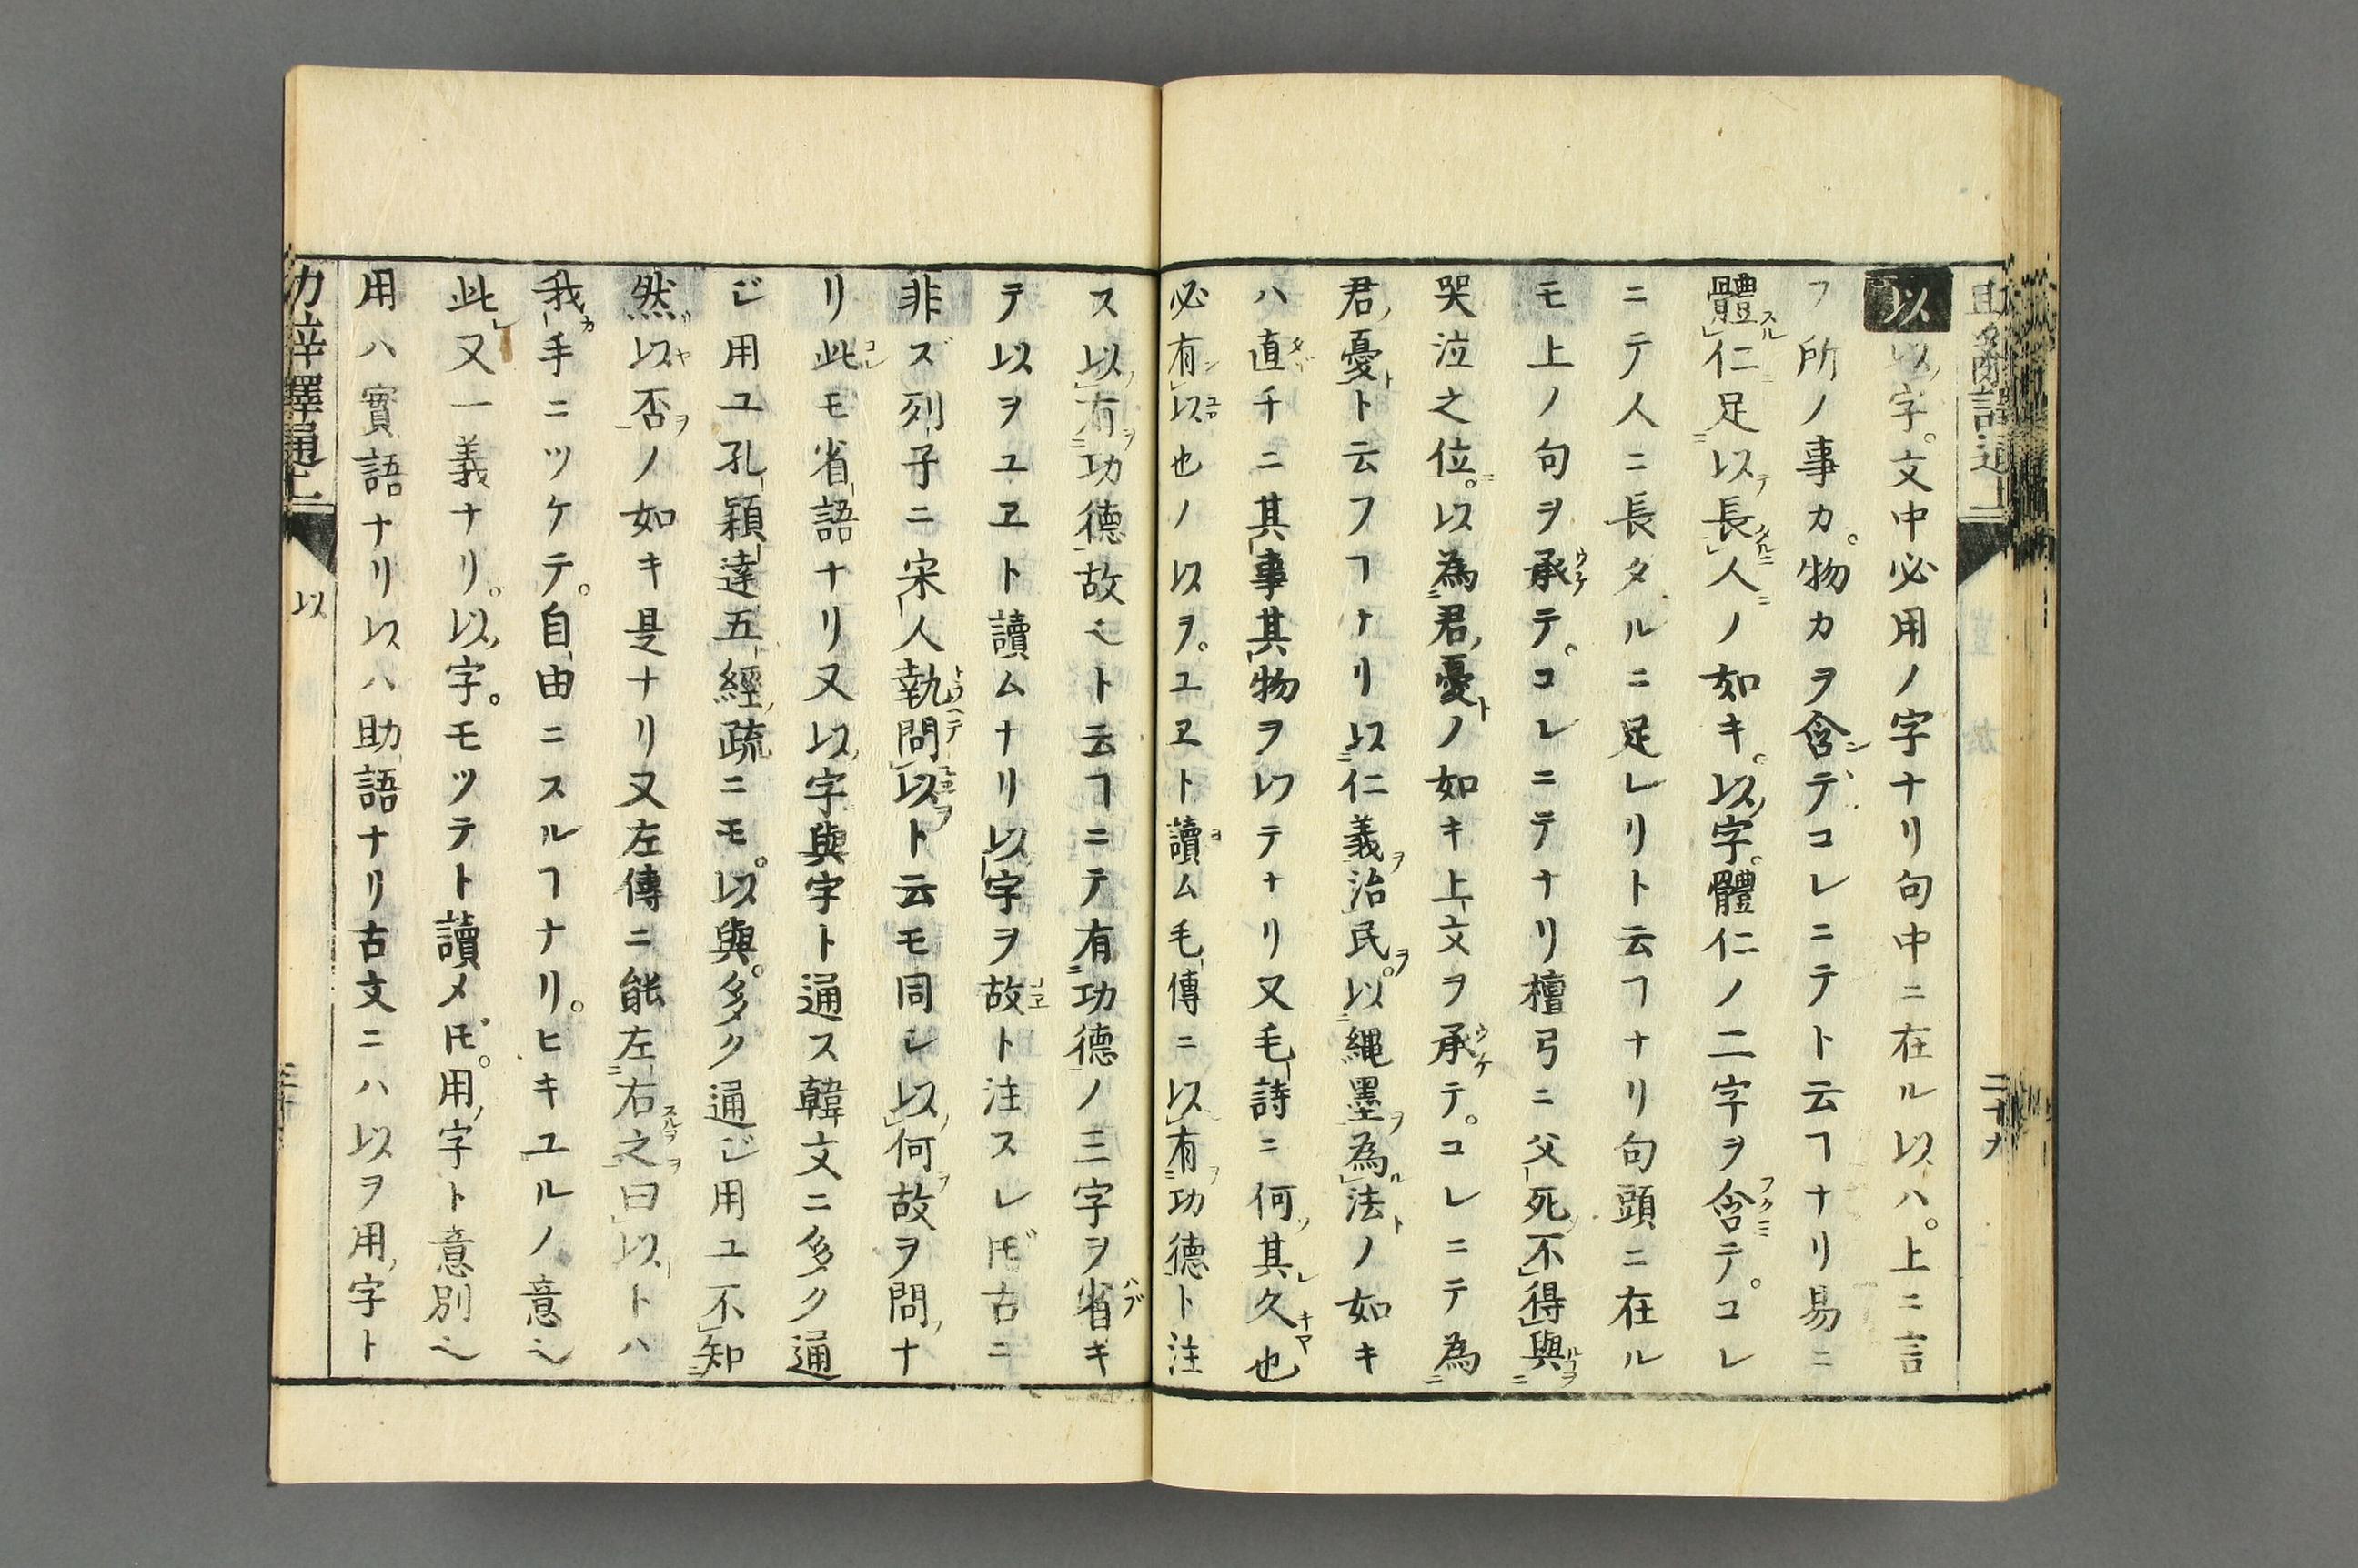 以 以字。文中必用ノ字ナリ句中ニ在ル以ハ。上ニ言
フ所ノ事カ。物カヲ含ンデコレニテト云ヿナリ易ニ
體仁足以長人ノ如キ。以字。體仁ノ二字ヲ含テ。コレ
ニテ人ニ長タルニ足レリト云ヿナリ句頭ニ在ル
モ上ノ句ヲ承テ。コレニテナリ檀弓ニ父死不得與
哭泣之位。以為君憂ノ如キ上文ヲ承テ。コレニテ為
君憂ト云フヿナリ以仁義治民。以繩墨為法ノ如キ
ハ直チニ其事其物ヲ以テナリ又毛詩ニ何其久也
必有以也ノ以ヲ。ユヱト讀ム毛傳ニ以有功德ト注
ス以有功德故也ト云ヿニテ有功德ノ三字ヲ省キ
テ以ヲユヱト讀ムナリ以字ヲ故ト注スレ𪜈古ニ
非ズ列子ニ宋人執問以ト云モ同シ以何故ヲ問ナ
リ此モ省語ナリ又以字與字ト通ス韓文ニ多ク通
ジ用ユ孔穎達五經疏ニモ。以與。多ク通ジ用ユ不知
然以否ノ如キ是ナリ又左傳ニ能左右之曰以トハ
我手ニツケテ。自由ニスルヿナリ。ヒキユルノ意也
此又一義ナリ。以字。モツテト讀メ𪜈。用字ト意別也
用ハ實語ナリ以ハ助語ナリ古文ニハ以ヲ用字ト
以
二十九